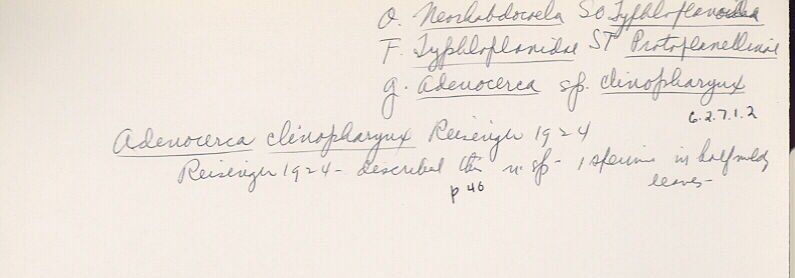 O. Neorhabdocoela SO Typhloplanoidea
F. Typhloplanidae ST Protoplanellinae
g. Adenocerca sp. clinopharynx
6.2.7.1.2
Adenocerca clinopharynx Reisinger 1924
Reisinger 1924 - described this n. sp - 1 specimen in half moldy
leaves -
p 46